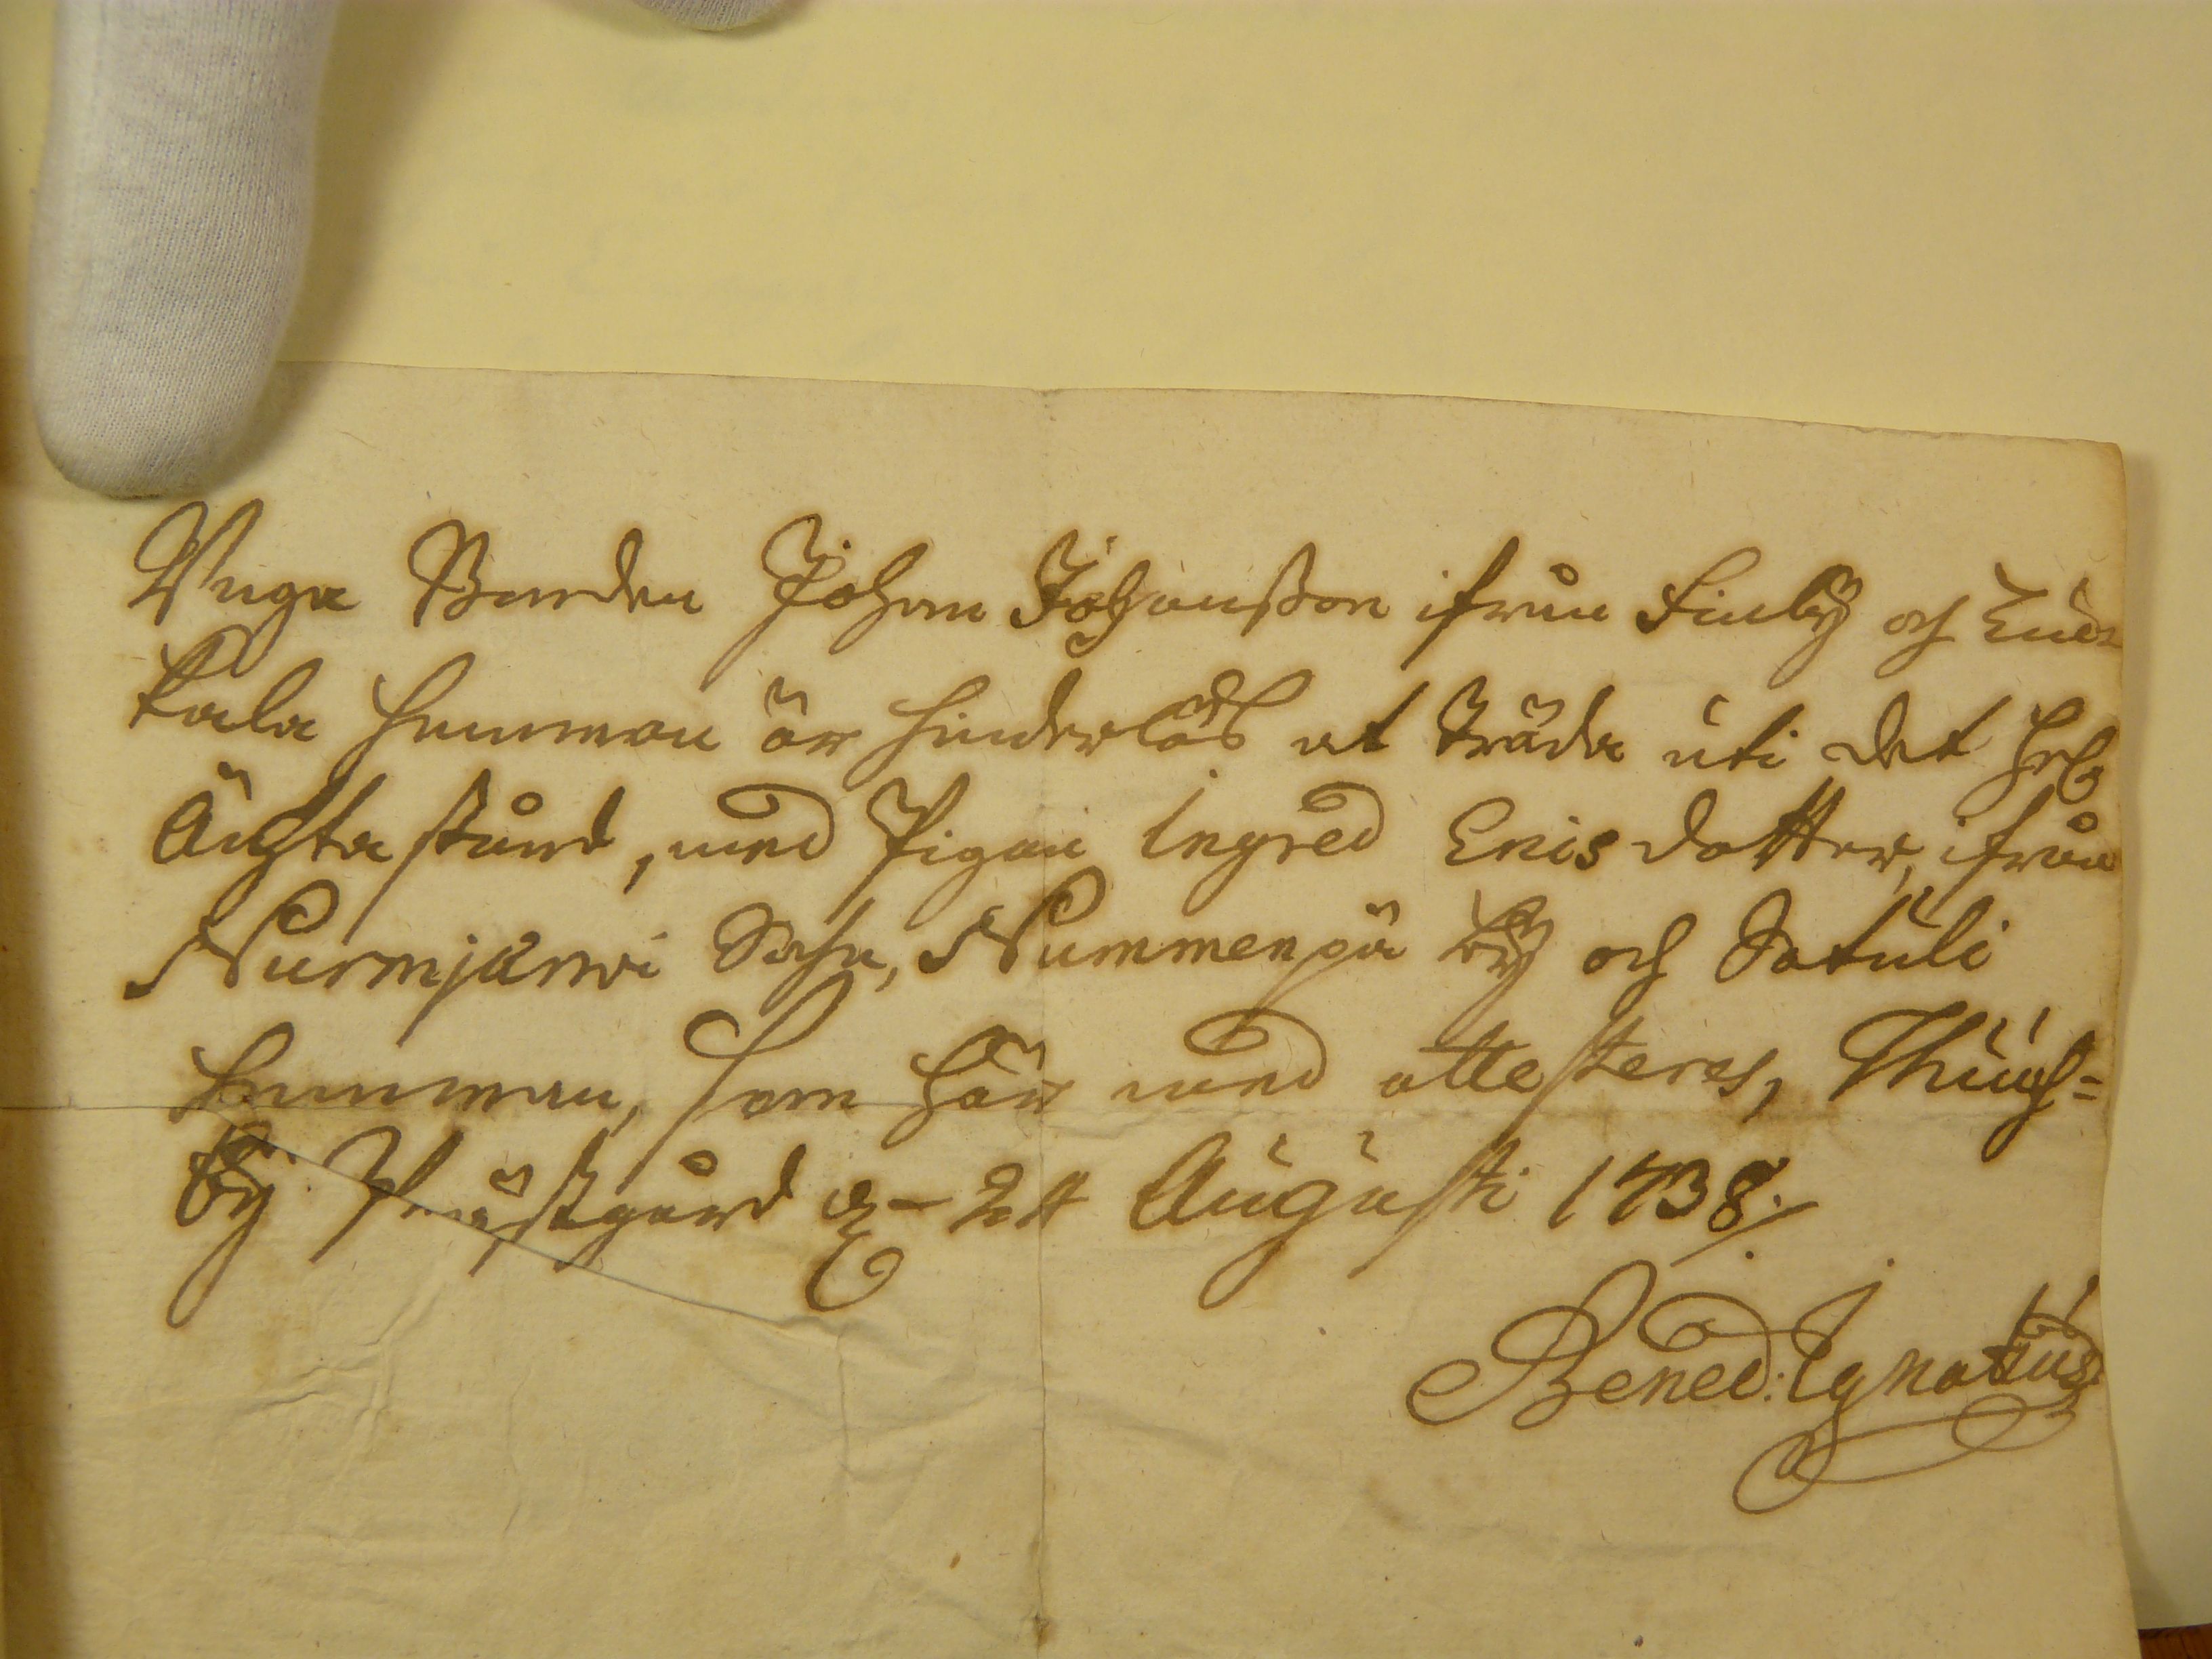 Unga Bonden Johan Johansson ifrån Finby och
kala hemman är hinderlös at träda uti det helg
Ächta stånd, med Pigan Ingred Erics dotter, ifrån
Nurmjärvi Sokn, Nummenpä by och Satuli
hemman, som här med attesteras, Thusk=
by Prästgård d. 24 Augusti 1738.
Bened: Ignatius